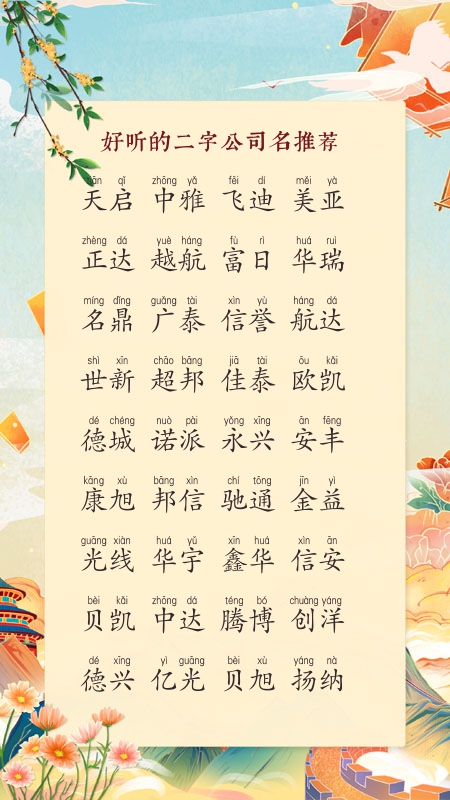 好听的二字公司名推荐
tiān qǐ zhōng yǎ fēi dí měi yà
天启 中雅 飞迪 美亚
zhèng dá yuè háng fù rì huá ruì
正达 越航 富日 华瑞
míng dǐng guǎng tài xìn yù háng dá
名鼎 广泰 信誉 航达
shì xīn chāo bāng jiā tài ōu kǎi
世新 超邦 佳泰 欧凯
dé chéng nuò pài yǒng xīng ān fēng
德城 诺派 永兴 安丰
kāng xù bāng xìn chí tōng jīn yì
康旭 邦信 驰通 金益
guāng xiàn huá yǔ xīn huá xìn ān
光线 华宇 鑫华 信安
bèi kǎi zhōng dá téng bó chuàng yáng
贝凯 中达 腾博 创洋
dé xīng yì guāng bèi xù yáng nà
德兴 亿光 贝旭 扬纳